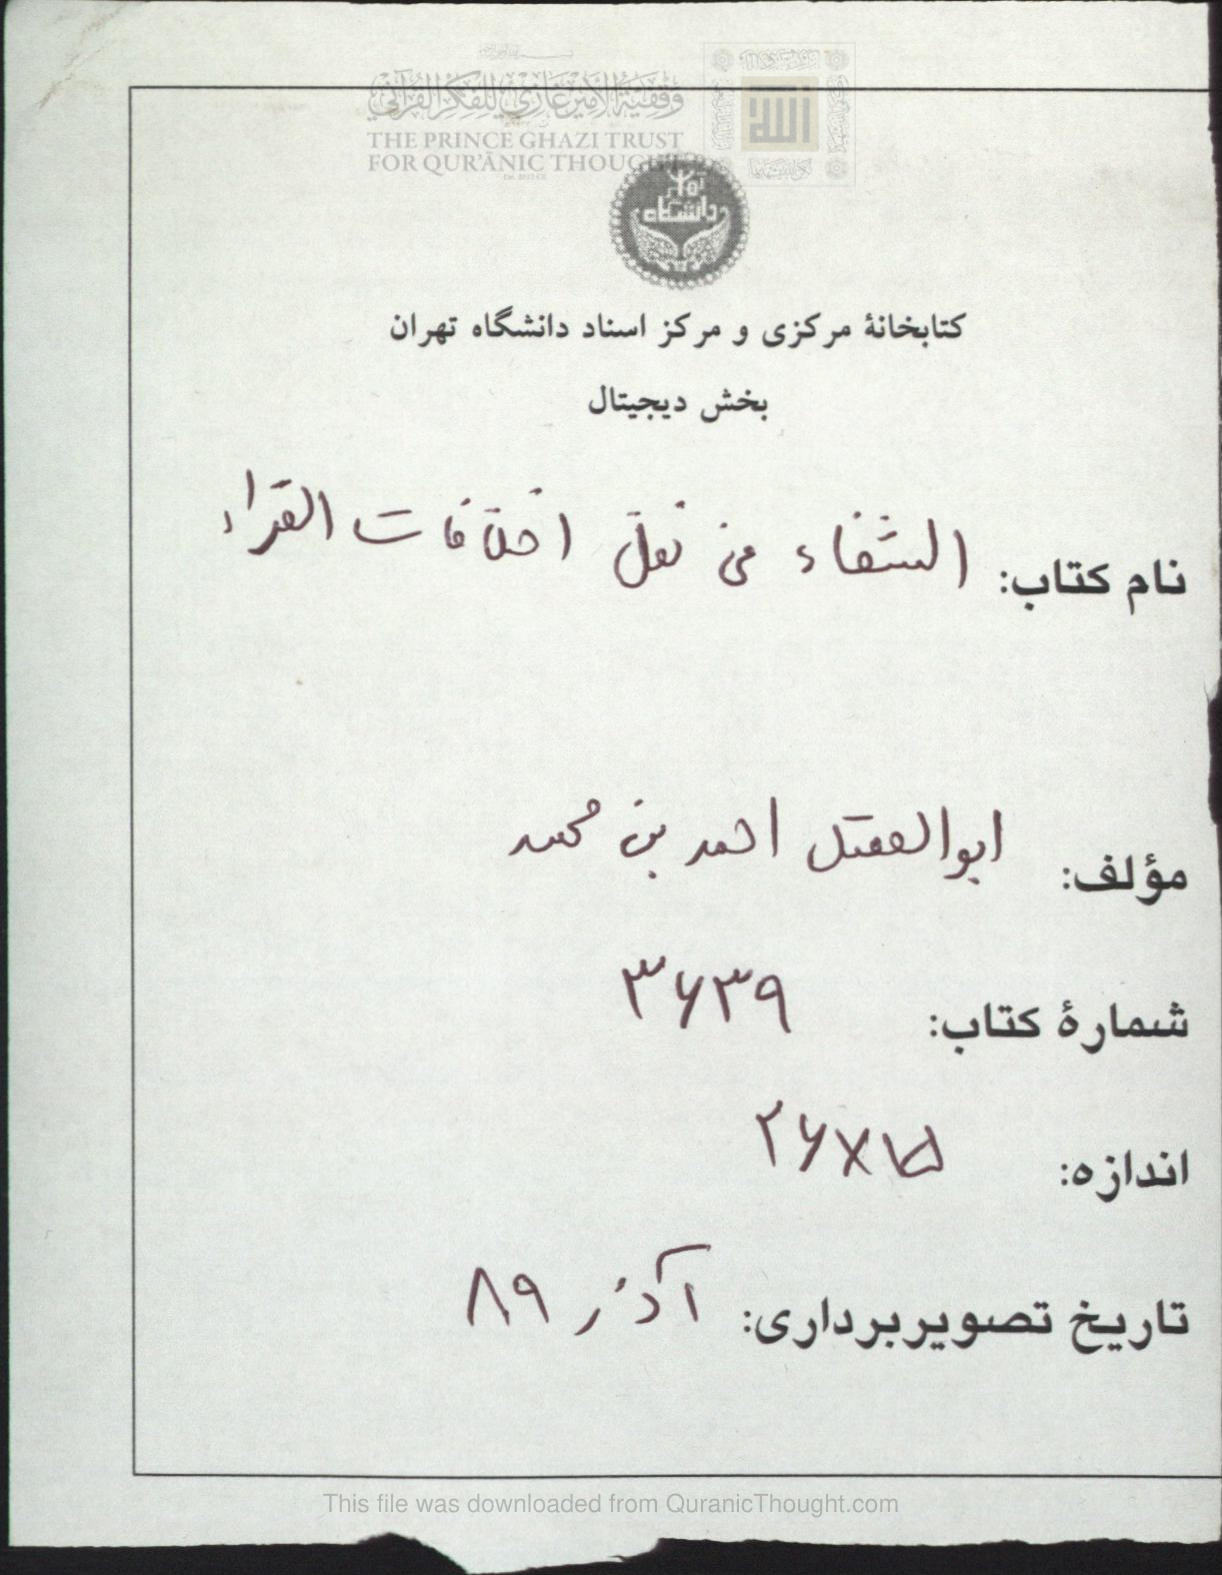 وقفية الأمير غازي للفكر القرآني
THE PRINCE GHAZI TRUST
FOR QUR'ĀNIC THOUGHT
دانشگاه
کتابخانهٔ مرکزی و مرکز اسناد دانشگاه تهران
بخش دیجیتال
نام کتاب: الشفاء فی نقل اختلافات القراء
مؤلف: ابوالفضل احمد بن محمد
شمارهٔ کتاب: ۳۶۳۹
اندازه: ۲۶×۱۵
تاریخ تصویربرداری: آذر ۸۹
This file was downloaded from QuranicThought.com